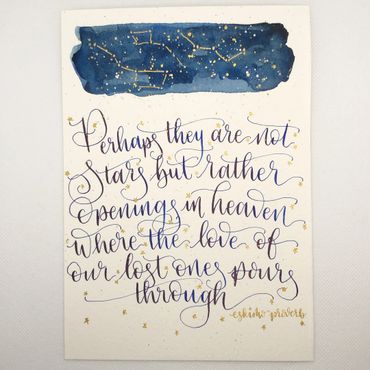 Perhaps they are not
stars but rather
openings in heaven
where the love of
our lost ones pours
through
eskimo proverb